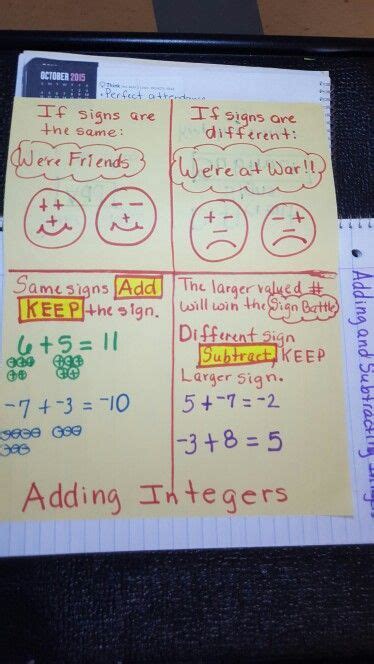 OCTOBER 2015
Think
• Perfect attendance
If signs are
the same:
We're Friends
+ +
+
- -
+
If signs are
different:
We're at War!!
+ -
- +
Same signs Add
KEEP the sign.
6 + 5 = 11
-7 + -3 = -10
The larger valued #
will win the Sign Battle
Different Sign
Subtract, KEEP
Larger sign.
5 + -7 = -2
-3 + 8 = 5
Adding Integers
Adding and Subtracting